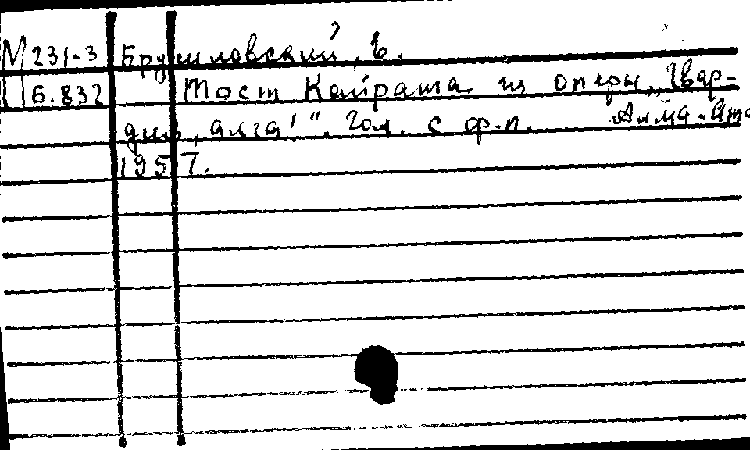 М 231-3 Брусиловский, Е.
6.832 Тост Кайрата из оперы „Гвар-
дия, алга!". Гол. с ф.п. Алма-Ата
1957.